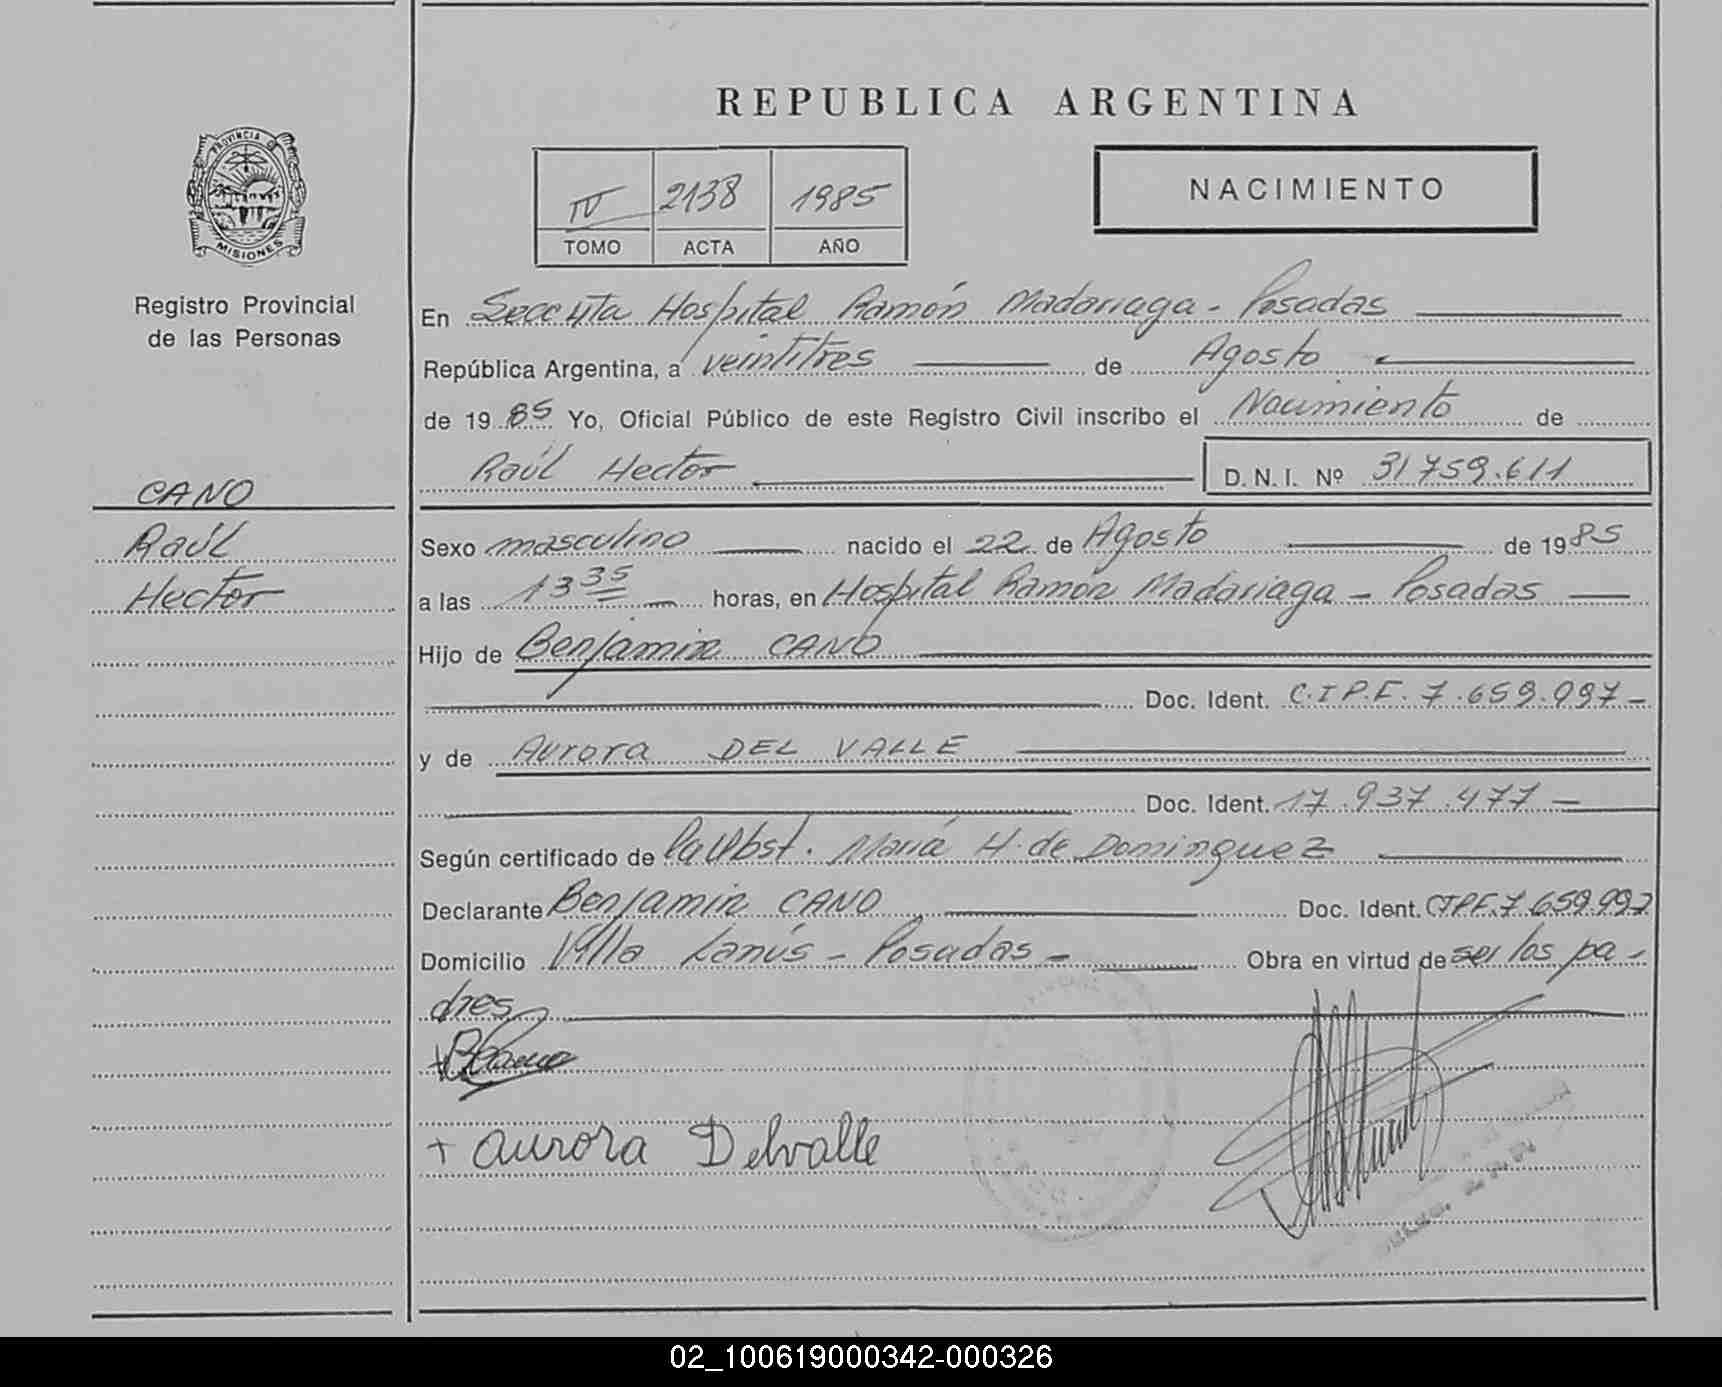 REPUBLICA ARGENTINA
PROVINCIA DE
MISIONES
Registro Provincial
de las Personas
CANO
Raúl
Hector
IV 2138 1985
TOMO ACTA AÑO
NACIMIENTO
En Secc 4ta Hospital Ramón Madariaga - Posadas
República Argentina, a veintitres de Agosto
de 1985 Yo, Oficial Público de este Registro Civil inscribo el Nacimiento de
Raúl Hector D.N.I. Nº 31759.611
Sexo masculino nacido el 22 de Agosto de 1985
a las 13 35 horas, en Hospital Ramón Madariaga - Posadas
Hijo de Benjamin CANO
Doc. Ident. C.I.P.F. 7.659.997-
y de Aurora DEL VALLE
Doc. Ident. 17.937.477-
Según certificado de Obst. María H. de Dominguez
Declarante Benjamin CANO Doc. Ident. CIPF.7.659.997
Domicilio Villa Lanús - Posadas - Obra en virtud de ser los pa-
dres
+ BCano
+ aurora Delvalle
02_100619000342-000326